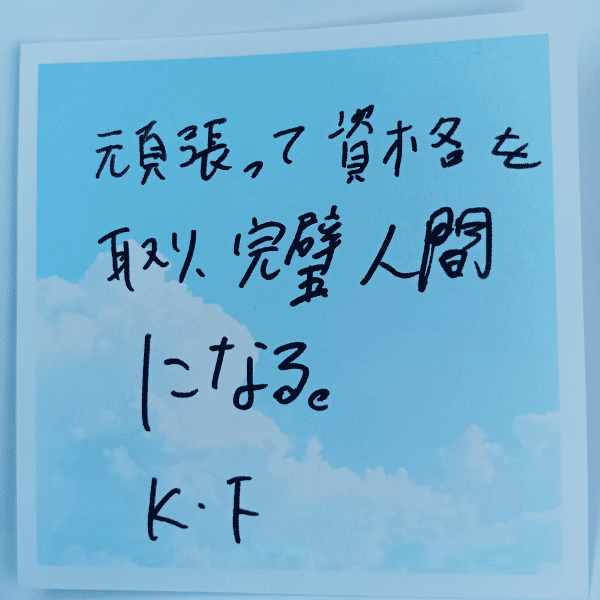 頑張って資格を
取り、完璧人間
になる。
K・F